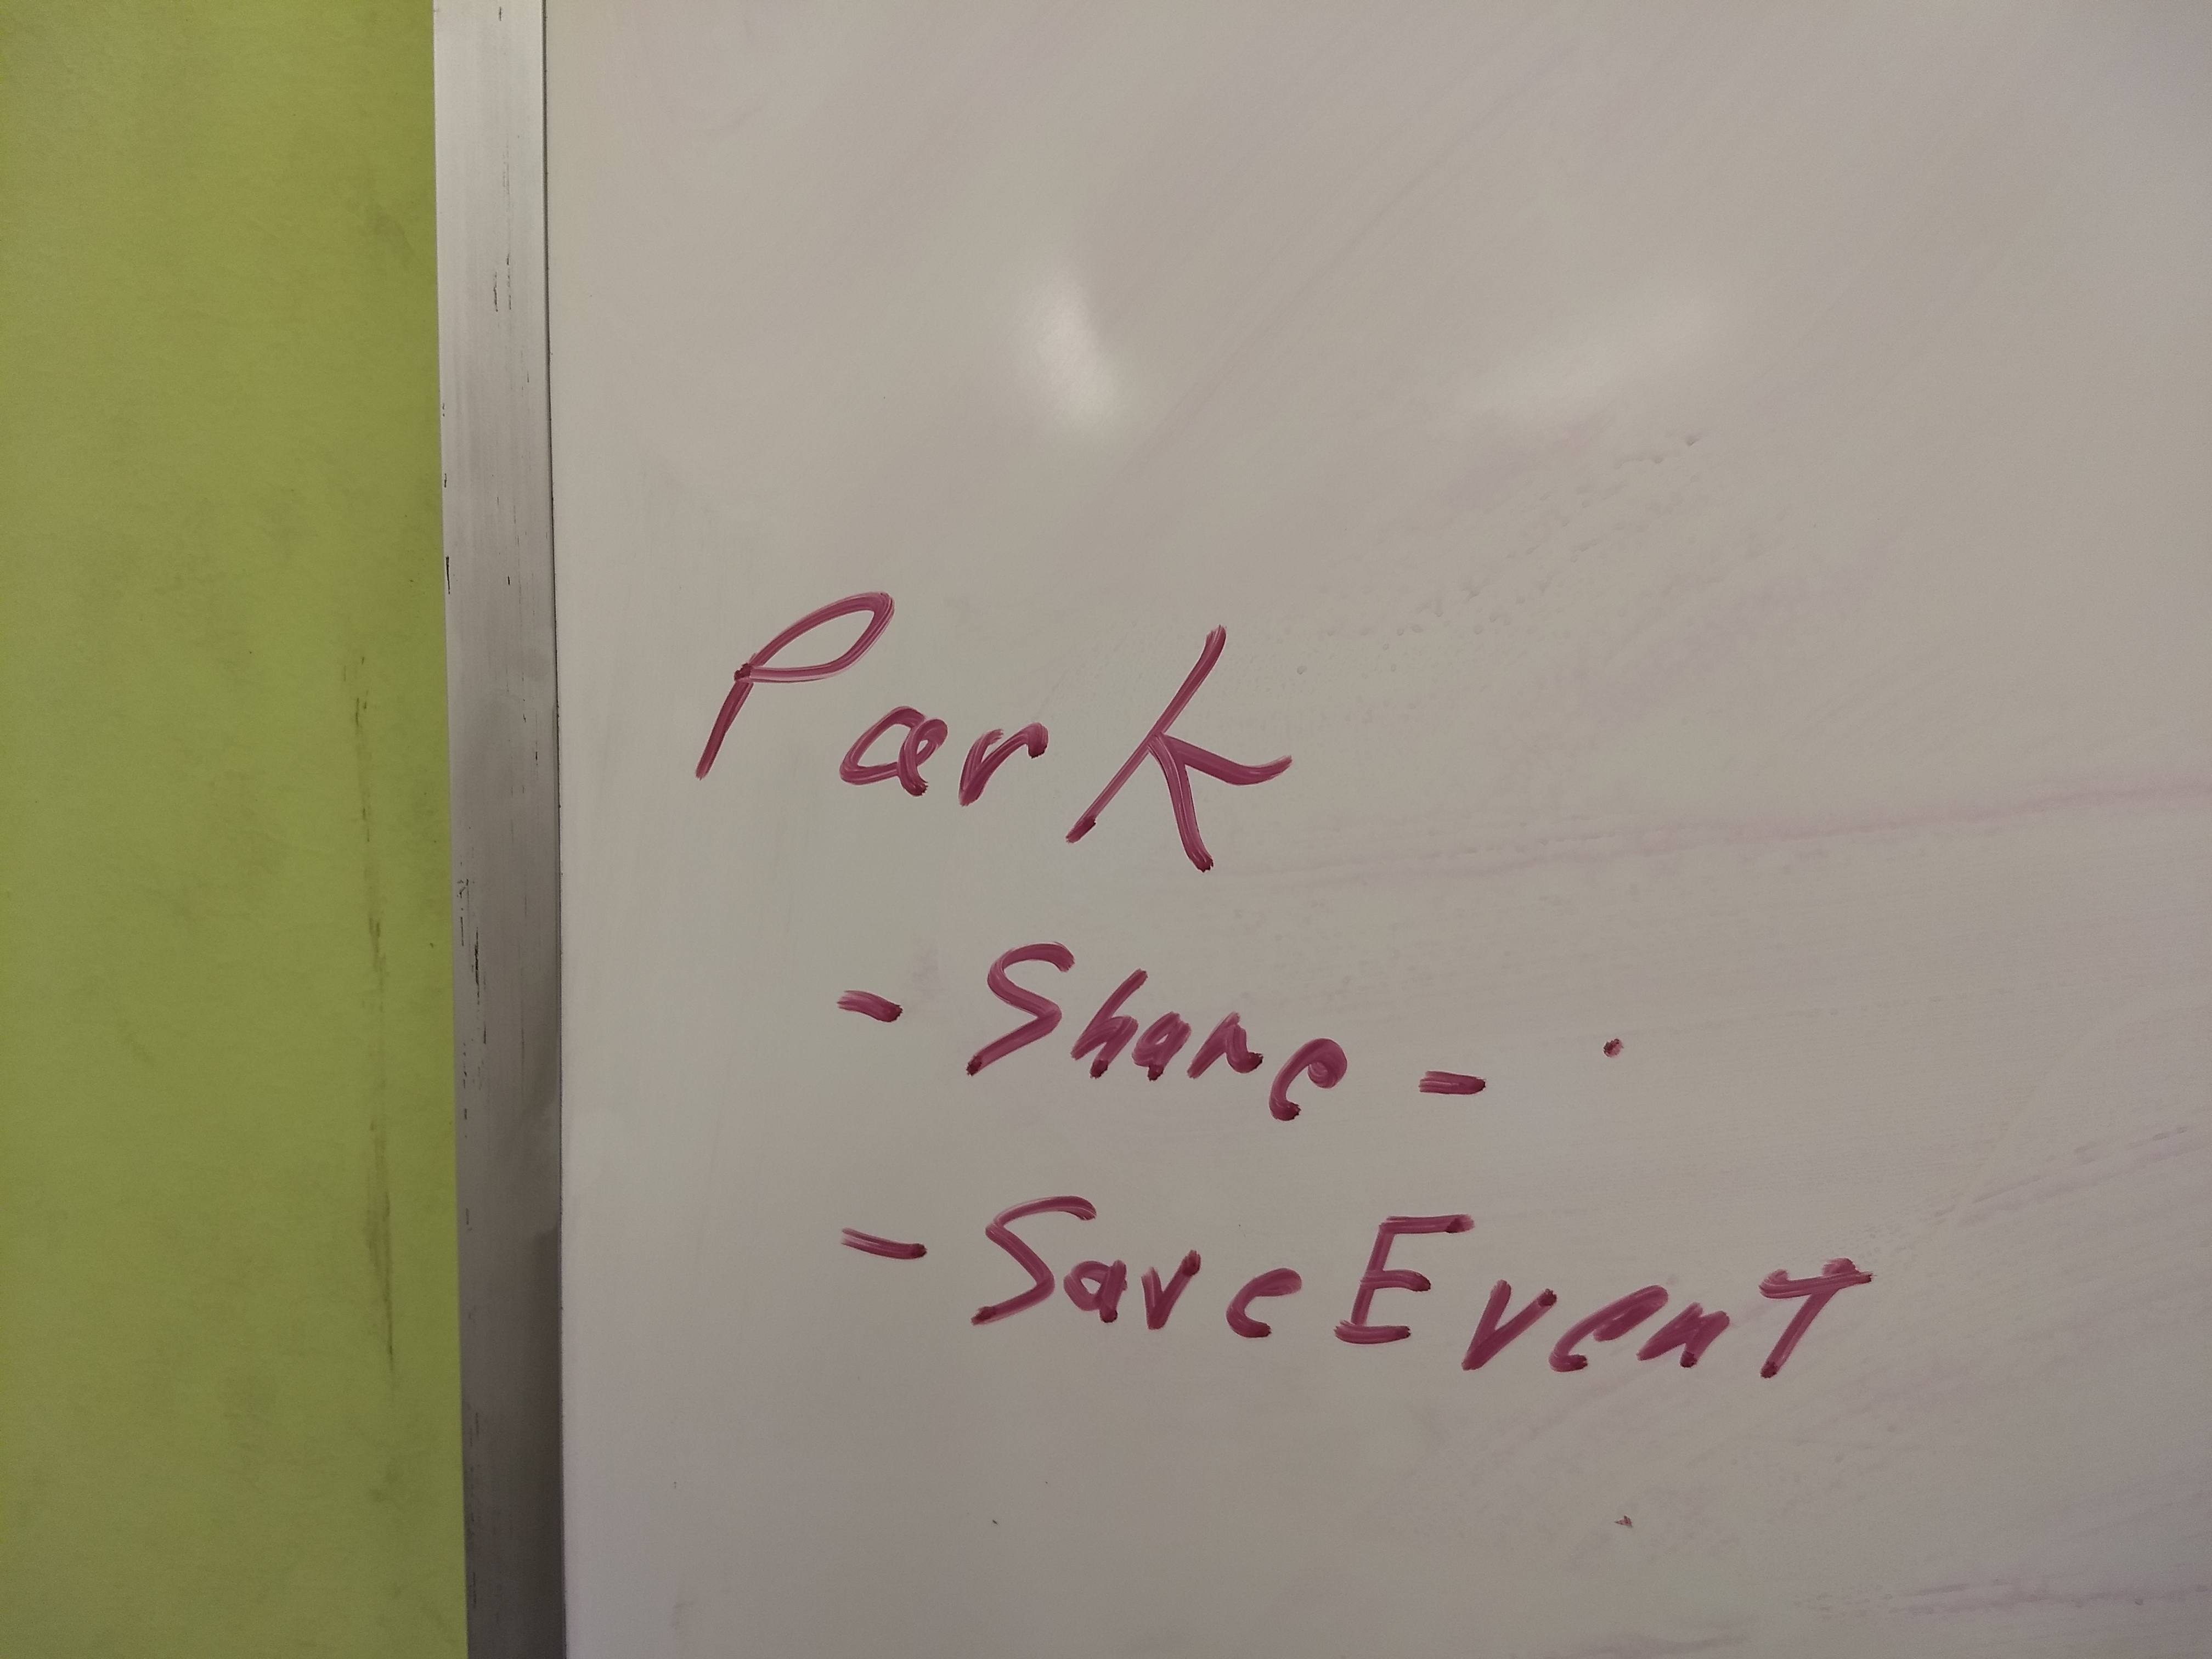 Park
- Share -
- SaveEvent